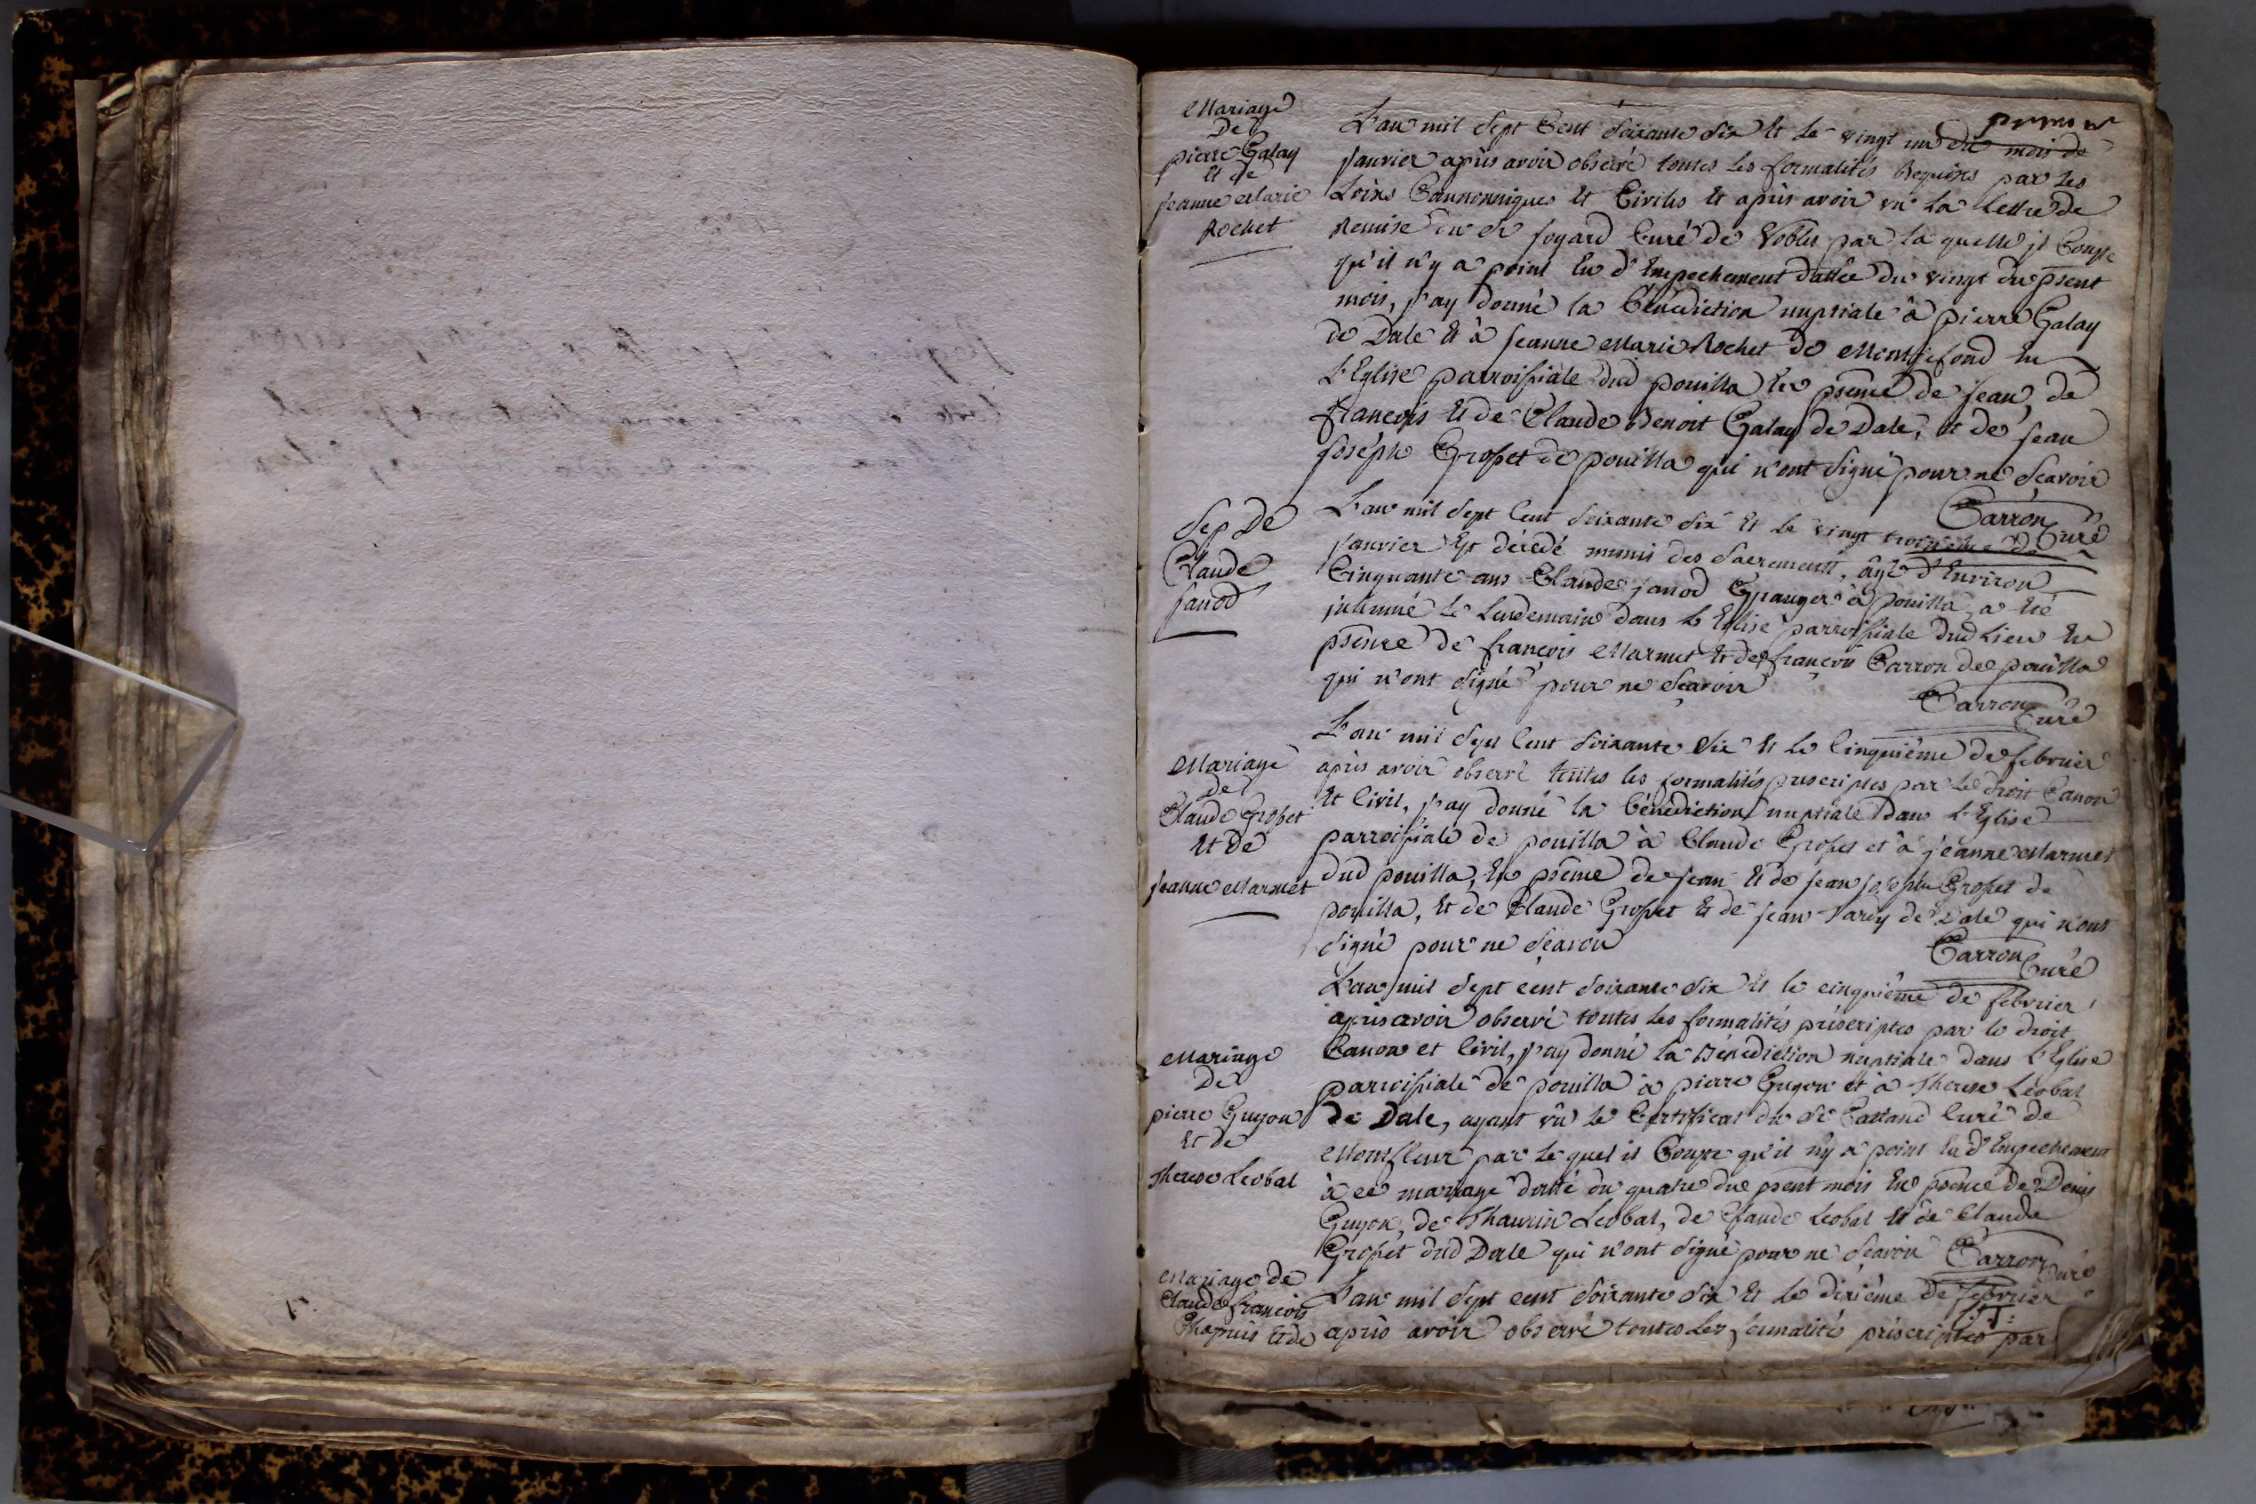 premier
Mariage
De
pierre Galay
Et de
jeanne Marie
Rochet
L'an mil Sept Cent Soixante Six Et le vingt un du mois de
janvier après avoir observé toutes les formalités Requises par les
Loix Cannonniques Et Civiles Et après avoir vu la lettre de
Remise du Sr joyard Curé de Vobles par la quelle il Conste
qu'il n'y a point Eu d'Empechement dattée du vingt du psent
mois, j'ay donné la Bénédiction nuptiale à pierre Galay
de Dale Et à jeanne Marie Rochet de En
L'Eglise parroissiale dud pouilla En psence de jean, de
françois Et de Claude Benoit Galay de Dale, et de jean
joseph Grospet de pouilla qui n'ont Signé pour ne Sçavoir
Carron Curé
Sep De
Claude
janod
L'an mil Sept Cent Soixante Six Et le vingt troisième de
janvier Est décédé munis des Sacrements, âgé d'Environ
Cinquante ans Claude janod Granger à pouilla a Eté
inhumé le Lendemain dans L'Eglise parroissiale dud Lieu En
psence de françois Marmet Et de françois Carron de pouilla
qui n'ont Signé pour ne Sçavoir
Carron Curé
Mariage
De
Claude Grospet
Et De
jeanne Marmet
L'an mil Sept Cent Soixante Six Et le Cinquième de febvrier
après avoir observé toutes les formalités prescriptes par le Droit Canon
Et Civil, j'ay donné la Bénédiction nuptiale Dans L'Eglise
parroissiale de pouilla à Claude Grospet et à jeanne Marmet
dud pouilla, En psence de jean Et de jean joseph Grospet de
pouilla, Et de Claude Grospet Et de jean Tardy de Dale qui n'ont
Signé pour ne Sçavoir
Carron Curé
Mariage
De
pierre Guyon
Et De
Therese Leobal
L'an mil Sept cent Soixante Six Et le cinquième de febvrier
après avoir observé toutes les formalités préscriptes par le droit
Canon et Civil, j'ay donné la Bénédiction nuptiale dans L'Eglise
parroissiale de pouilla à pierre Guyon et à Therese Léobal
de Dale, ayant vû le Certificat du Sr Curé de
Montfleur par le quel il Conste qu'il n'y a point Eu d'Empechement
à ce mariage datté du quatre du psent mois En psence de Denis
Guyon, de Leobal, de Claude Leobal Et de Claude
Grospet dud Dale qui n'ont Signé pour ne Sçavoir
Carron Curé
Mariage de
Claude françois
Chapuis Et de
L'an mil Sept cent Soixante Six Et le dixième de febvrier
après avoir observé toutes les formalités préscriptes par